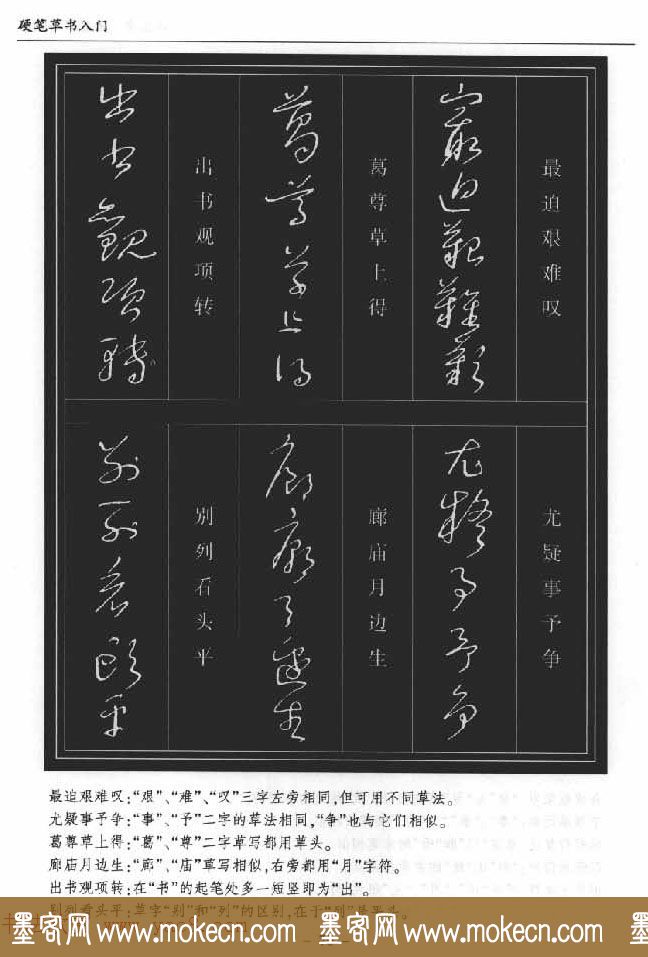 硬笔草书入门
最迫艰难叹
最迫艰难叹
葛尊草上得
葛尊草上得
出书观项转
出书观项转
尤疑事予争
尤疑事予争
廊庙月边生
廊庙月边生
别列看头平
别列看头平
最迫艰难叹:“艰”、“难”、“叹”三字左旁相同,但可用不同草法。
尤疑事予争:“事”、“予”二字的草法相同,“争”也与它们相似。
葛尊草上得:“葛”、“尊”二字草写都用草头。
廊庙月边生:“廊”、“庙”草写相似,右旁都用“月”字符。
出书观项转:在“书”的起笔处多一短竖即为“出”。
别列看头平:草字“别”和“列”的区别,在于“列”是平头。
墨客网 www.mokecn.com 墨客网 www.mokecn.com 墨客网